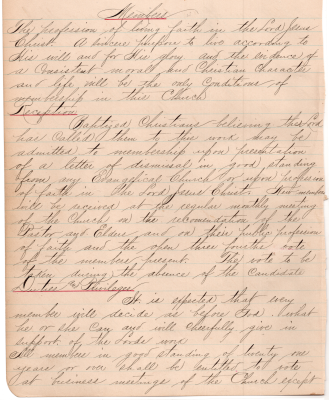 Members
The profession of loving faith in the Lord Jesus
Christ. A sincere purpose to live according to
His will and for His glory and the evidence of
a consistent moral and Christian character
and life, will be the only conditions of
membership in this Church
Reception
Baptized Christians believing the Lord
has called them to the work may be
admitted to membership upon presentation
of a letter of dismissal in good standing
from any Evangelical Church or upon profession
of faith in the Lord Jesus Christ. New members
will be received at the regular monthly meeting
of the Church on the recomendation of the
Pastor and Elders and on their public profession
of faith and the open three fourths vote
of the members present. The vote to be
taken during the absence of the Candidate
Duties & Privileges
It is expected that every
member will decide as before God what
he or she can and will cheerfully give in
support of the Lords work
All members in good standing of twenty one
years or over shall be entitled to vote
at business meetings of the Church except